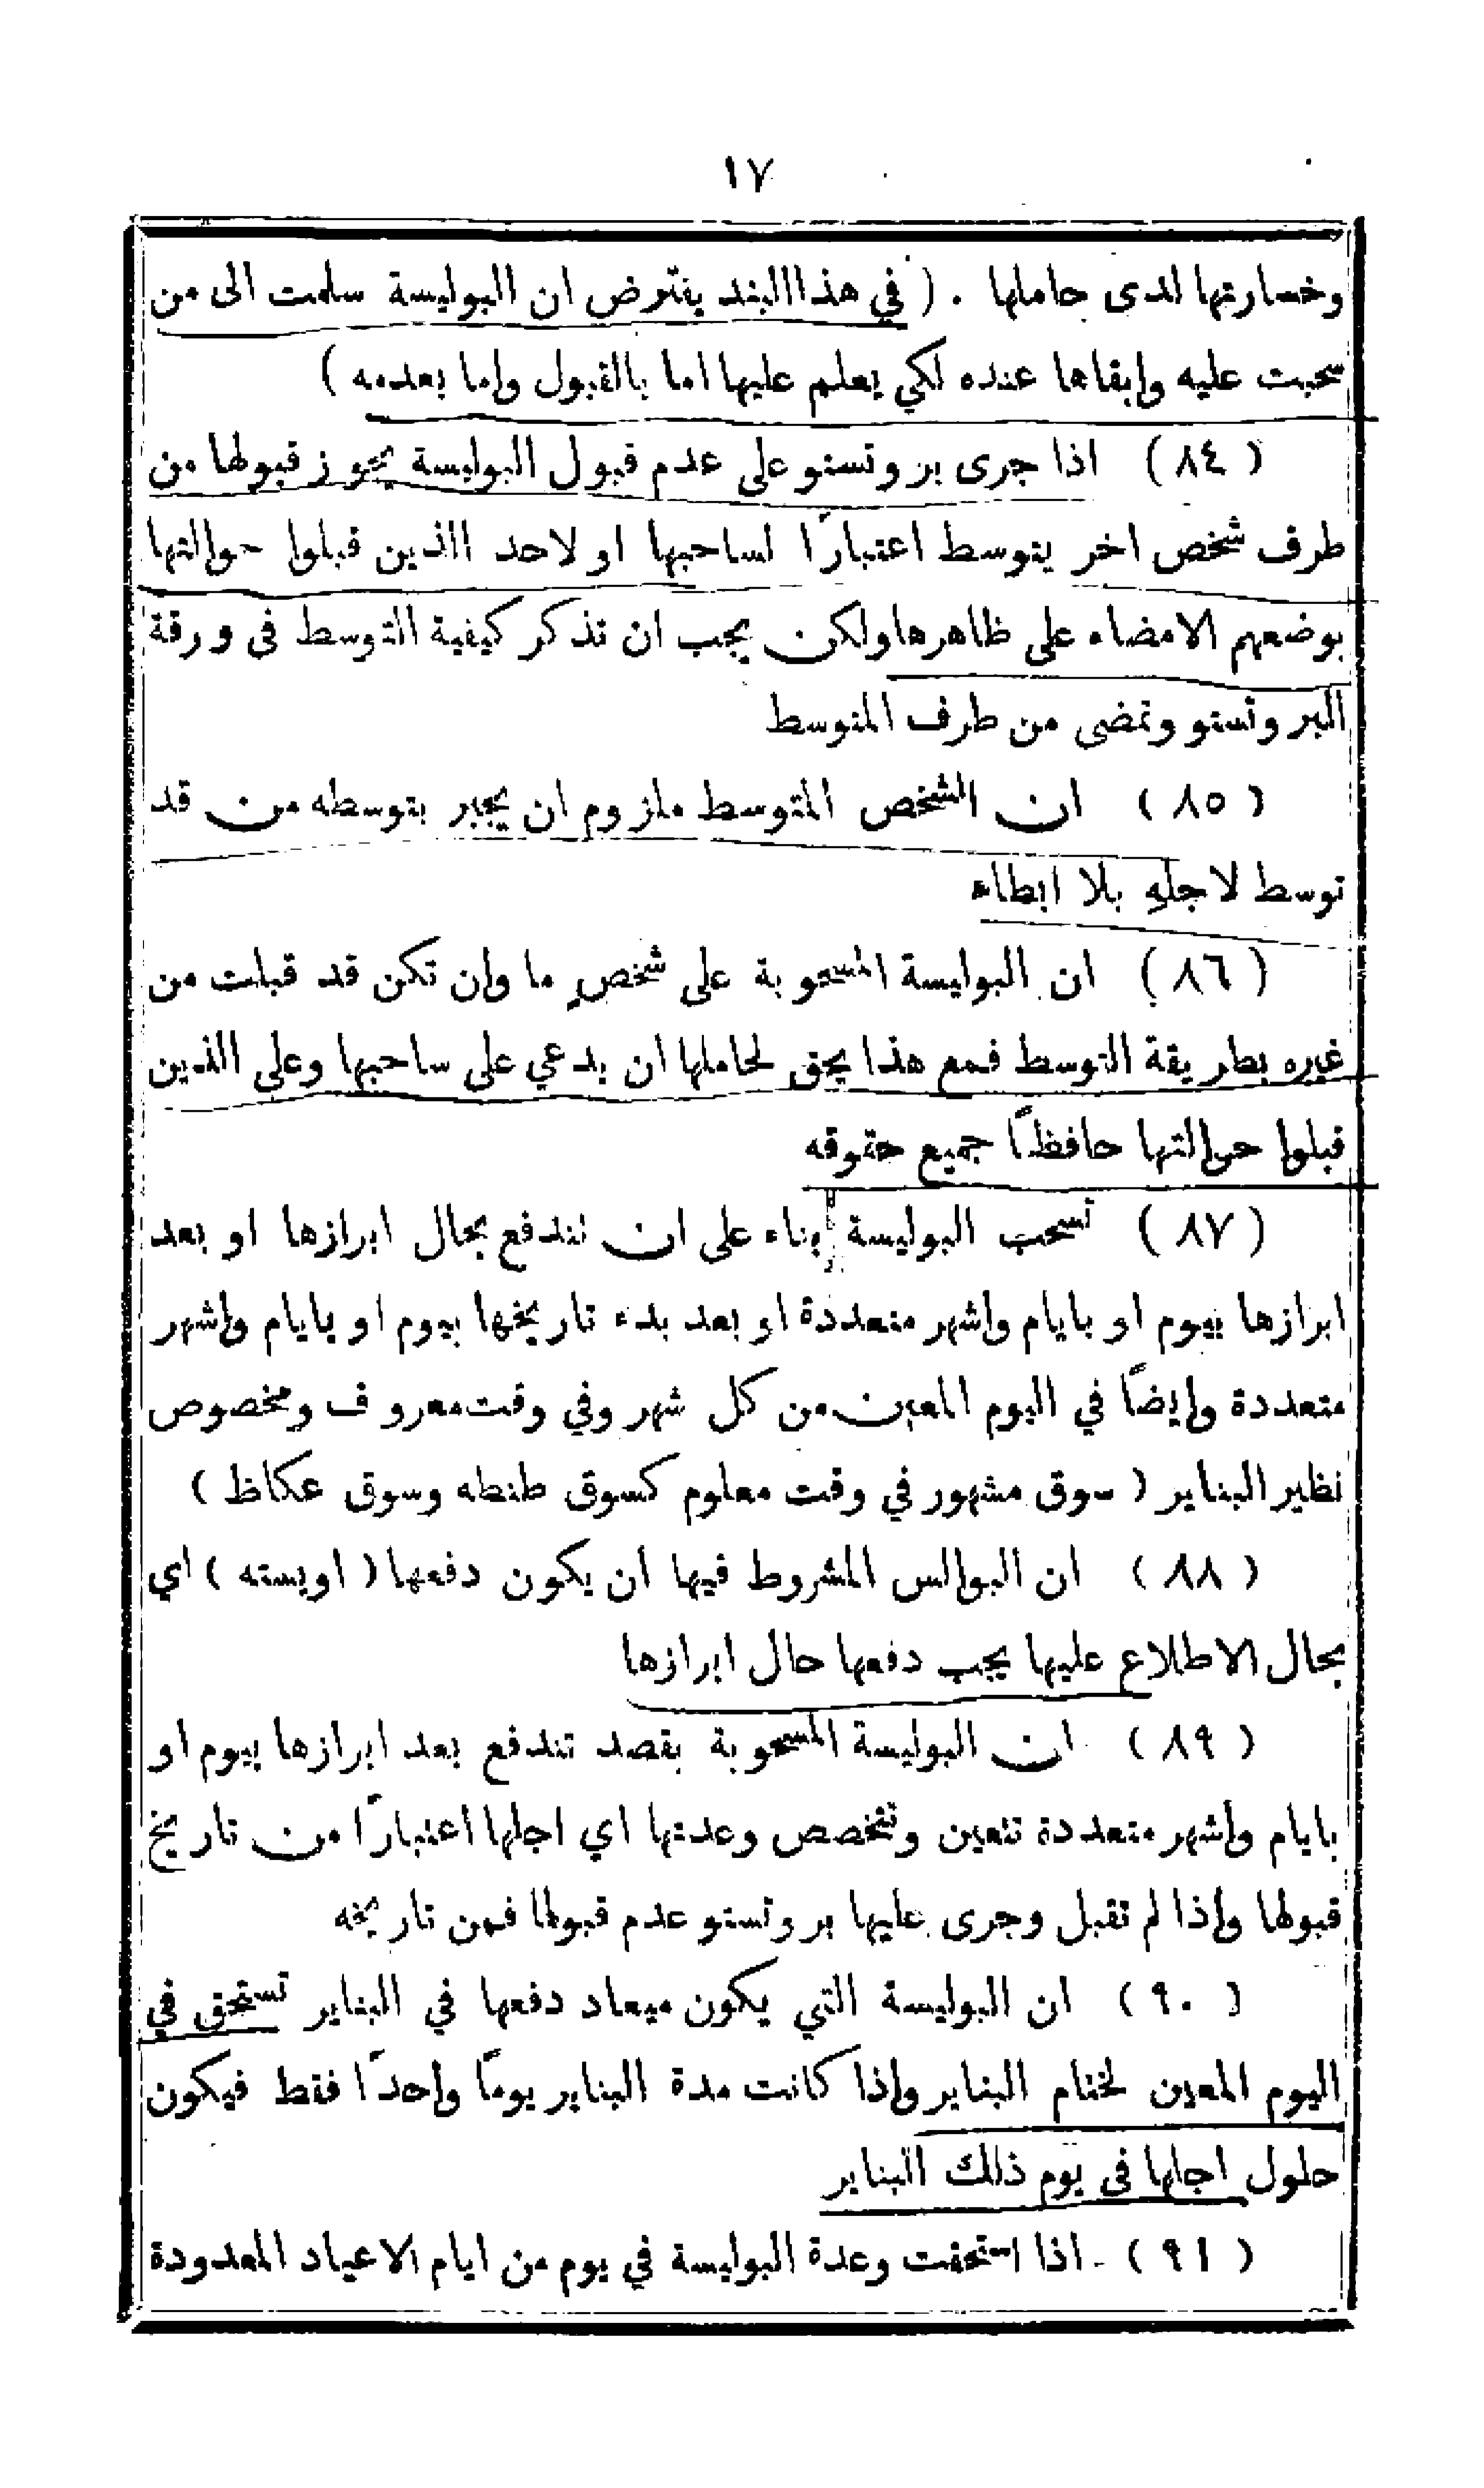 ١٧
وخسارتها لدى حاملها . ( في هذا البند يفترض ان البوليسة سلمت الى من
سحبت عليه وابقاها عنده لكي يعلم عليها اما بالقبول واما بعدمه )
( ٨٤ ) اذا جرى بروتستو على عدم قبول البوليسة يجوز قبولها من
طرف شخص اخر يتوسط اعتبارًا لساحبها او لاحد الذين قبلوا حوالتها
بوضعهم الامضاء على ظاهرها ولكن يجب ان تذكر كيفية التوسط في ورقة
البروتستو وتمضى من طرف المتوسط
( ٨٥ ) ان الشخص المتوسط ملزوم ان يجبر بتوسطه من قد
توسط لاجلهِ بلا ابطاء
( ٨٦ ) ان البوليسة المسحوبة على شخصٍ ما وان تكن قد قبلت من
غيره بطريقة التوسط فمع هذا يحق لحاملها ان يدعي على ساحبها وعلى الذين
قبلوا حوالتها حافظًا جميع حقوقه
( ٨٧ ) تسحب البوليسة بناء على ان تندفع بحال ابرازها او بعد
ابرازها بيوم او بايام واشهر متعددة او بعد بدء تاريخها بيوم او بايام واشهر
متعددة وايضًا في اليوم المعين من كل شهر وفي وقت معروف ومخصوص
نظير البناير ( سوق مشهور في وقت معلوم كسوق طنطه وسوق عكاظ )
( ٨٨ ) ان البوالس المشروط فيها ان يكون دفعها ( اويسته ) اي
بحال الاطلاع عليها يجب دفعها حال ابرازها
( ٨٩ ) ان البوليسة المسحوبة بقصد تندفع بعد ابرازها بيوم او
بايام واشهر متعددة تتعين وتتخصص وعدتها اي اجلها اعتبارًا من تاريخ
قبولها واذا لم تقبل وجرى عليها بروتستو عدم قبولها فمن تاريخه
( ٩٠ ) ان البوليسة التي يكون ميعاد دفعها في البناير تستحق في
اليوم المعين لختام البناير واذا كانت مدة البناير يومًا واحدًا فقط فيكون
حلول اجلها في يوم ذلك البناير
( ٩١ ) اذا استحقت وعدة البوليسة في يوم من ايام الاعياد المعدودة